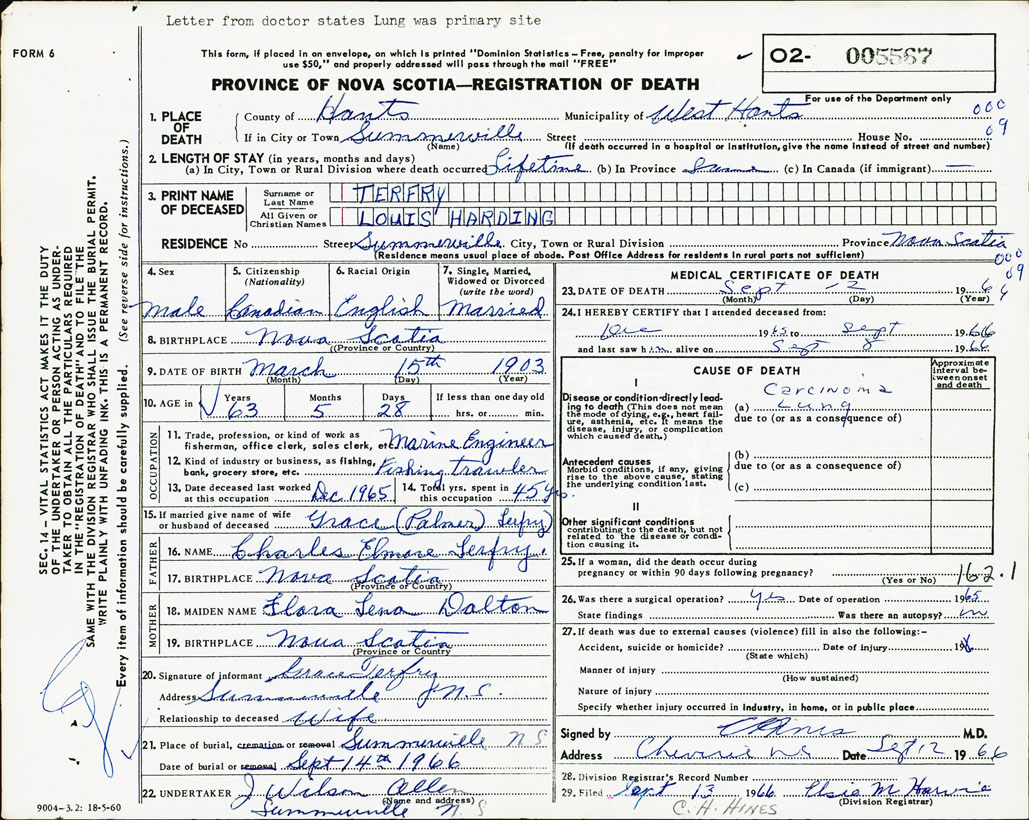 Letter from doctor states Lung was primary site
FORM 6
This form, if placed in an envelope, on which is printed "Dominion Statistics – Free, penalty for improper
use $50," and properly addressed will pass through the mail "FREE"
O2- 005567
PROVINCE OF NOVA SCOTIA—REGISTRATION OF DEATH
For use of the Department only
000
09
1. PLACE OF DEATH
County of Hants Municipality of West Hants
If in City or Town Summerville Street House No.
(Name) (If death occurred in a hospital or institution, give the name instead of street and number)
2. LENGTH OF STAY (in years, months and days)
(a) In City, Town or Rural Division where death occurred Lifetime (b) In Province Same (c) In Canada (if immigrant) —
3. PRINT NAME OF DECEASED
Surname or Last Name TERFRY
All Given or Christian Names LOUIS HARDING
RESIDENCE No Street Summerville City, Town or Rural Division Province Nova Scotia
(Residence means usual place of abode. Post Office Address for residents in rural parts not sufficient)
000
09
4. Sex 5. Citizenship (Nationality) 6. Racial Origin 7. Single, Married, Widowed or Divorced (write the word)
Male Canadian English Married
8. BIRTHPLACE Nova Scotia
(Province or Country)
9. DATE OF BIRTH March 15th 1903
(Month) (Day) (Year)
10. AGE in Years Months Days If less than one day old
63 5 28 hrs. or min.
OCCUPATION
11. Trade, profession, or kind of work as
fisherman, office clerk, sales clerk, etc. Marine Engineer
12. Kind of industry or business, as fishing,
bank, grocery store, etc. Fishing trawler
13. Date deceased last worked at this occupation Dec 1965 14. Total yrs. spent in this occupation 45 yrs.
15. If married give name of wife
or husband of deceased Grace (Palmer) Terfry
FATHER
16. NAME Charles Elmore Terfry.
17. BIRTHPLACE Nova Scotia
(Province or Country)
MOTHER
18. MAIDEN NAME Flora Lena Dalton
19. BIRTHPLACE Nova Scotia
(Province or Country
20. Signature of informant Grace Terfry
Address Summerville N.S.
Relationship to deceased Wife
21. Place of burial, cremation or removal Summerville N S
Date of burial or removal Sept 14th 1966
22. UNDERTAKER J Wilson Allen
(Name and address)
Summerville N. S
MEDICAL CERTIFICATE OF DEATH
23. DATE OF DEATH Sept 12 1966
(Month) (Day) (Year)
24. I HEREBY CERTIFY that I attended deceased from:
Dec 1965 to Sept 1966
and last saw him alive on Sept 8 1966
CAUSE OF DEATH
Approximate interval between onset and death
I
Disease or condition directly leading to death (This does not mean the mode of dying, e.g., heart failure, asthenia, etc. It means the disease, injury, or complication which caused death.)
Carcinoma
(a) Lung
due to (or as a consequence of)
Antecedent causes
Morbid conditions, if any, giving rise to the above cause, stating the underlying condition last.
(b)
due to (or as a consequence of)
(c)
II
Other significant conditions
contributing to the death, but not related to the disease or condition causing it.
25. If a woman, did the death occur during
pregnancy or within 90 days following pregnancy?
(Yes or No) 162.1
26. Was there a surgical operation? yes Date of operation 1965
State findings Was there an autopsy? no
27. If death was due to external causes (violence) fill in also the following:–
Accident, suicide or homicide? Date of injury 19
(State which)
Manner of injury
(How sustained)
Nature of injury
Specify whether injury occurred in industry, in home, or in public place
Signed by M.D.
Address Cheverie N S Date Sept 12 1966
28. Division Registrar's Record Number
29. Filed Sept 13 1966 Elsie M Harvie
(Division Registrar)
C. H. HINES
SEC. 14 – VITAL STATISTICS ACT MAKES IT THE DUTY
OF THE UNDERTAKER OR PERSON ACTING AS UNDER-
TAKER TO OBTAIN ALL THE PARTICULARS REQUIRED
IN THE "REGISTRATION OF DEATH" AND TO FILE THE
SAME WITH THE DIVISION REGISTRAR WHO SHALL ISSUE THE BURIAL PERMIT.
WRITE PLAINLY WITH UNFADING INK. THIS IS A PERMANENT RECORD.
Every item of information should be carefully supplied. (See reverse side for instructions.)
9004-3.2: 18-5-60